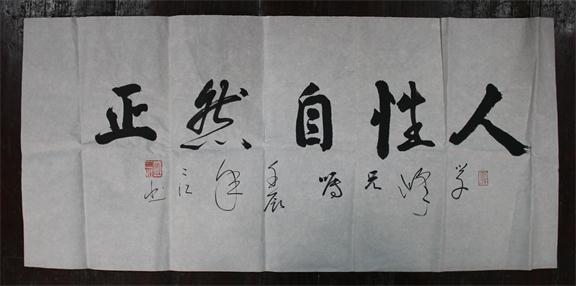 人性自然正
学峰兄嘱
壬辰年三江书